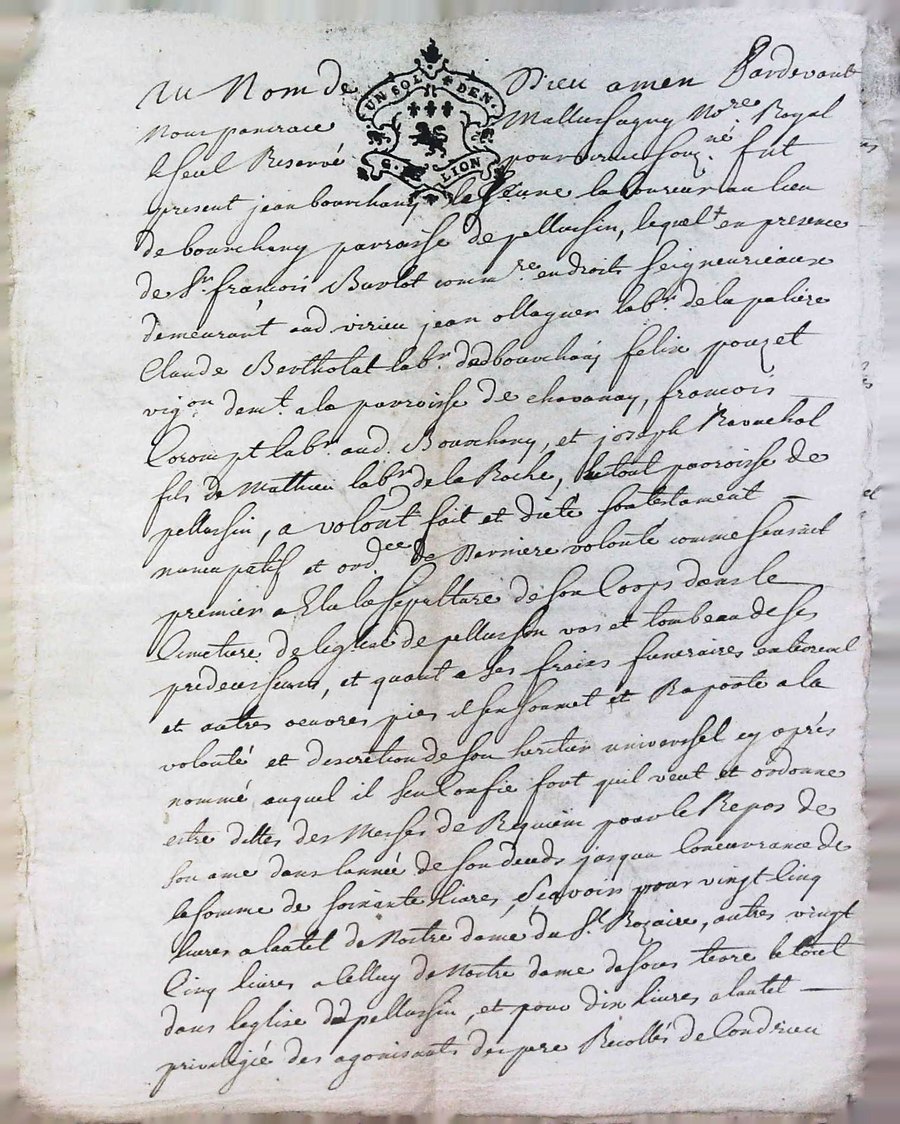 UN SOL DEN.
G. LION
Au Nom de Dieu amen Pardevant
Nous pancrace Mallassagny No.re Royal
le seul Reservé pour souz.né fut
present jean bourchany le Jeune laboureur au lieu
de bourchany parroisse de pellussin, lequel en presence
de Sr. françois Burlot comm.re en droits seigneuriaux
demeurant aud virieu jean ollagner labr. de la paliere
Claude Bertholat labr. de bourchany felix pouzet
vig.on demt. a la parroisse de chavanay, francois
Corompt labr. aud. Bourchany, et joseph Ravachol
fils de Mathieu labr. de la Roche, le tout parroisse de
pellussin, a volont fait et dicté son testament
nuncupatif et ord.ee de Derniere volonté comme sensuit
premier a Elu la sepulture de son Corps dans le
Cimetiere de leglise de pellussin vas et tombeau de ses
predecesseurs, et quant a ses fraies funeraires enterrem.t
et autres oeuvres pies il sen soumet et Raporte a la
volonté et descretion de son heritier universel cy après
nommé auquel il sen Confie font quil veut et ordonne
estre dittes des Messes de Requiem pour le Repos de
son ame dans lannée de son deceds jusqua Concurrance de
la somme de soixante livres, Sçavoir pour vingt Cinq
livres a lautel de Nostre dame du St. Rozaire, autres vingt
Cinq livres a celluy de Nostre dame de sous terre le tout
dans leglise de pellussin, et pour dix livres a lautel
privilegié des agonisants des pere Recollés de Condrieu